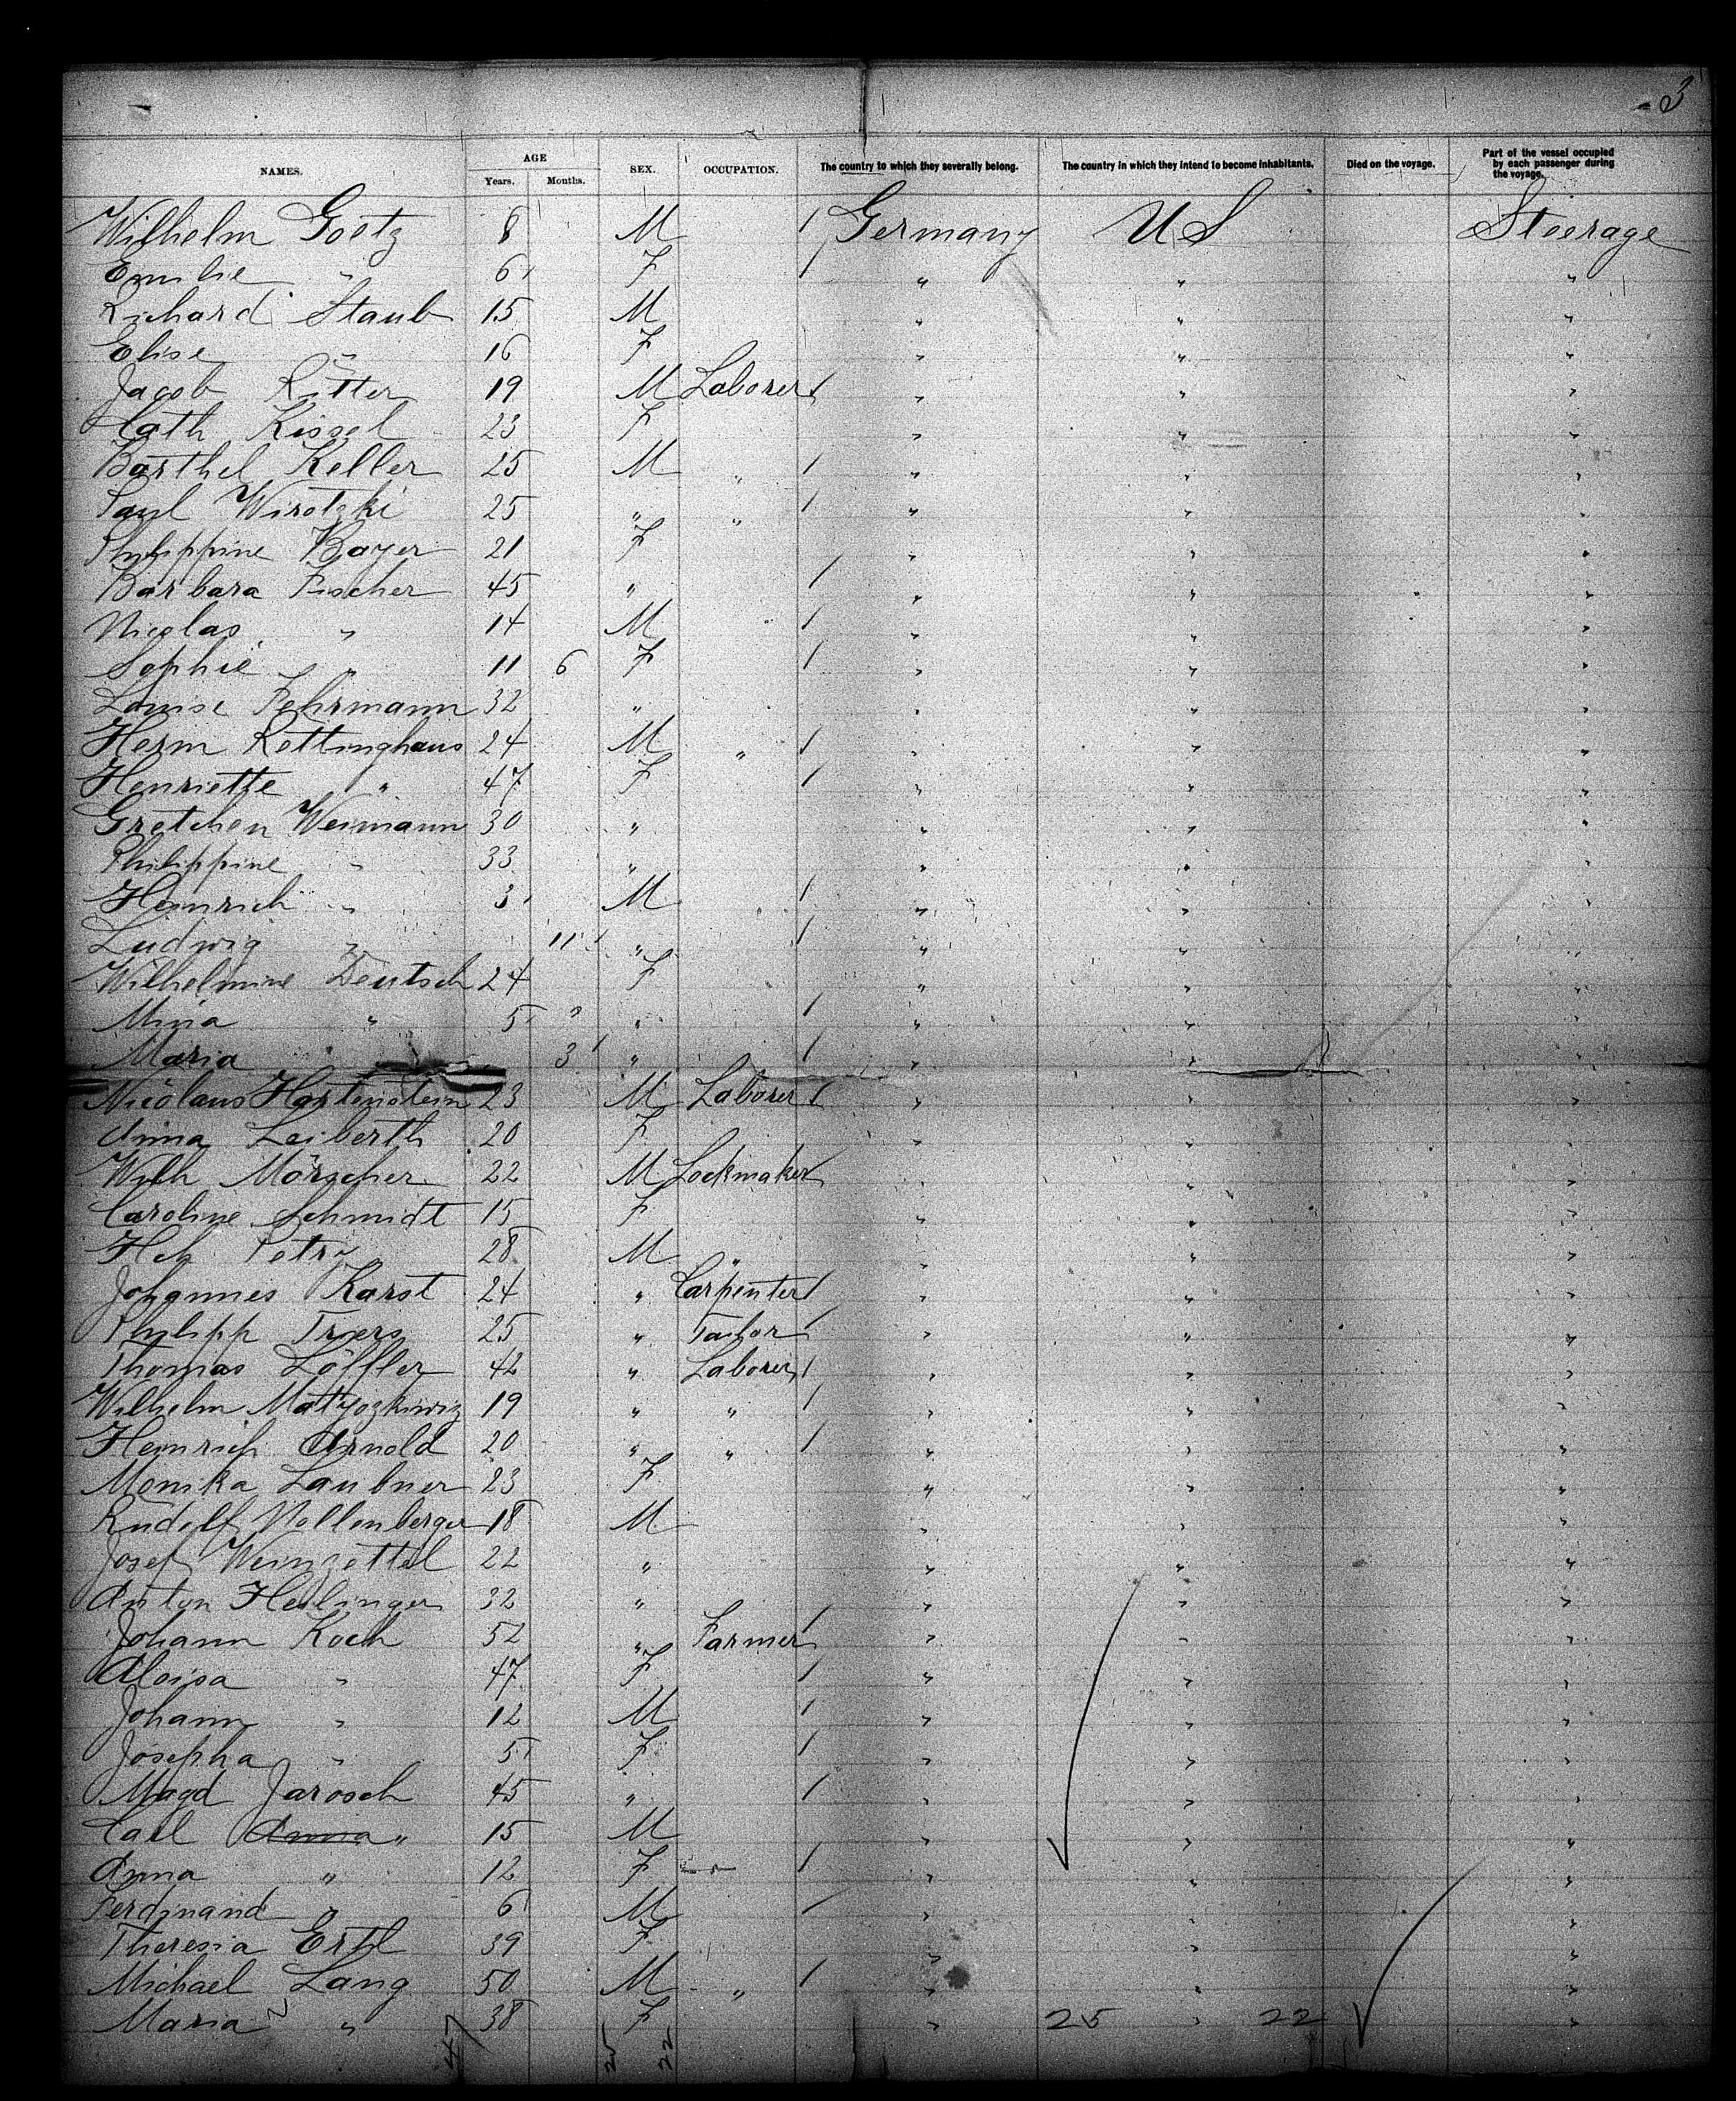 3
NAMES. AGE Years. Months. SEX. OCCUPATION. The country to which they severally belong. The country in which they intend to become inhabitants. Died on the voyage. Part of the vessel occupied by each passenger during the voyage.
Wilhelm Goetz 8 M / Germany U S Steerage
Emilie " 6 F / " " "
Richard Staub 15 M " " "
Elise " 16 F " " "
Jacob Ritter 19 M Laborer / " " "
Cath Kissel 23 F " " "
Barthel Keller 25 M " / " " "
Paul Wirotzki 25 " " / " " "
Philippine Bayer 21 F " " "
Barbara Fischer 45 " / " " "
Nicolas " 14 M / " " "
Sophie " 11 6 F / " " "
Louise Fehrmann 32 " " " "
Herm Rettinghaus 24 M " / " " "
Henriette " 47 F / " " "
Gretchen Weimann 30 " " " "
Philippine " 33 " " " "
Heinrich " 3 M / " " "
Ludwig " 11 " / " " "
Wilhelmine Deutsch 24 F " " "
Mina " 5 " " / " " "
Maria 3 " / " " "
Nicolaus Hartenstein 23 M Laborer / " " "
Anna Leiberth 20 F " " "
Wilh Mörscher 22 M Lockmaker / " " "
Caroline Schmidt 15 F " " "
Hch Petry 28 M " " " "
Johannes Karst 24 " Carpenter / " " "
Philipp Triers 25 " Tailor / " " "
Thomas Löffler 42 " Laborer / " " "
Wilhelm 19 " " / " " "
Heinrich Arnold 20 " " / " " "
Monika Laubner 23 F " " "
Rudolf Nollenberger 18 M " " "
Josef Weinzettel 22 " " " "
Anton Heilinger 32 " " " "
Johann Koch 52 " Farmer / " " "
Aloisa " 47 F / " " "
Johann " 12 M / " " "
Josepha " 5 F / " " "
Magd Jarosch 45 " / " " "
Carl Anna " 15 M " " "
Anna " 12 F / " " "
Ferdinand " 6 M / " " "
Theresia Ertl 39 F " " "
Michael Lang 50 M " / " " "
Maria " 38 F " 25 " 22 "
47 25 22